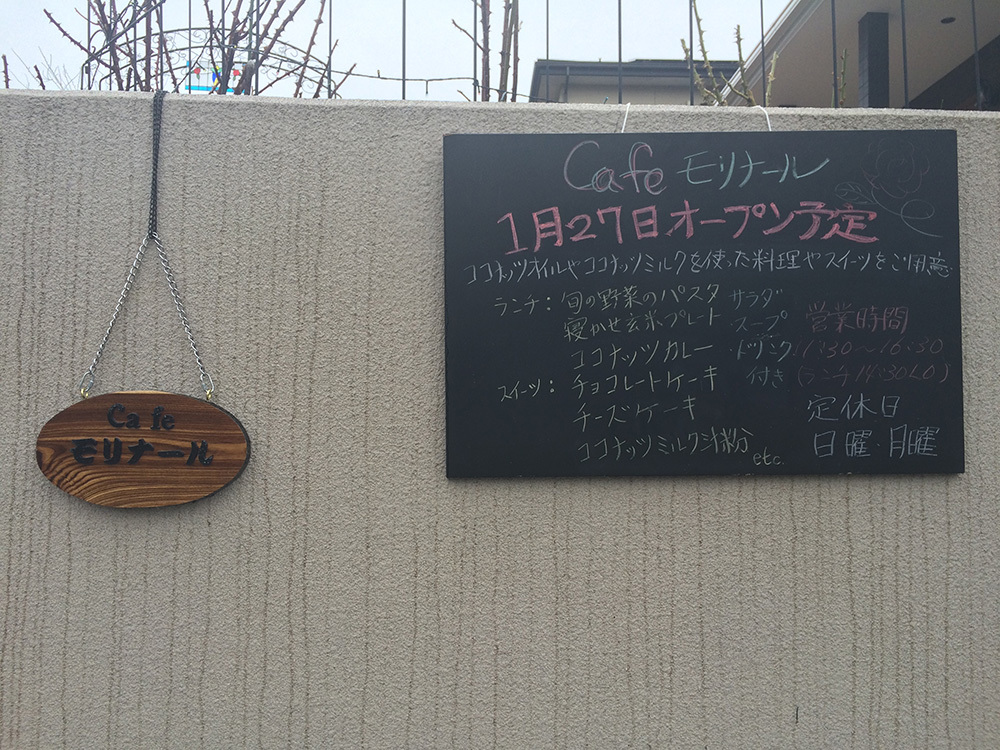 Cafe
モリナール
Cafe モリナール
1月27日オープン予定
ココナッツオイルやココナッツミルクを使った料理やスイーツをご用意
ランチ：旬の野菜のパスタ サラダ
寝かせ玄米プレート スープ
ココナッツカレー ドリンク
付き
スイーツ：チョコレートケーキ
チーズケーキ
ココナッツミルク汁粉 etc.
営業時間
11:30〜16:30
(ランチ14:30LO)
定休日
日曜・月曜